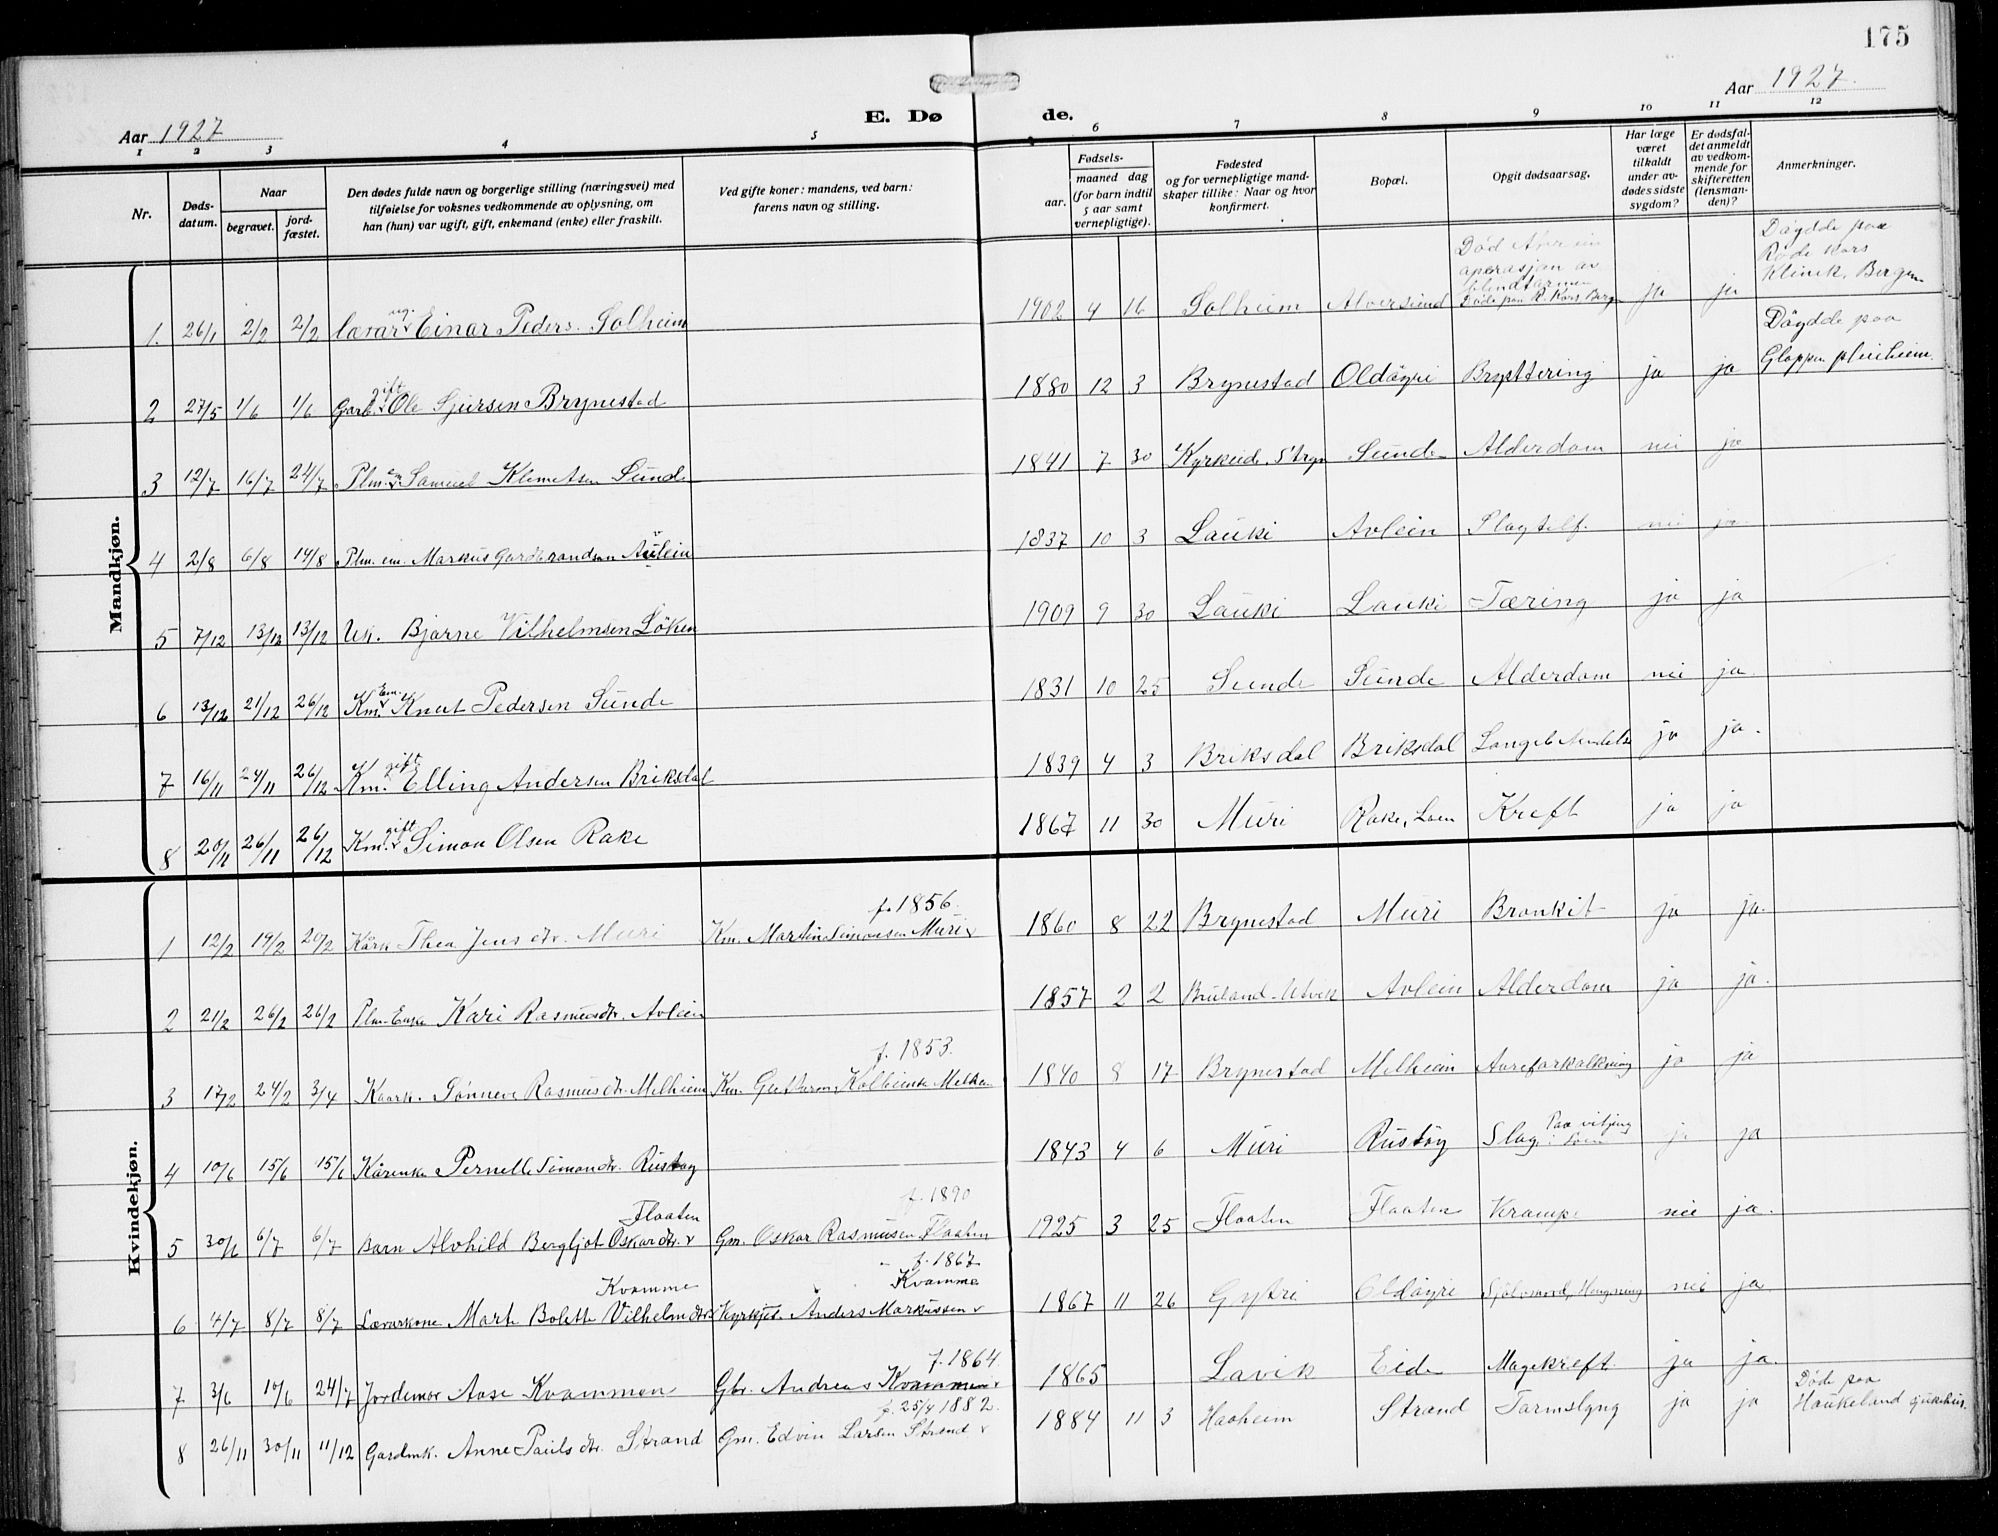 175
Aar 1927
Aar 1927.
E. Dø de.
1 2 3 4 5 6 7 8 9 10 11 12
Nr.
Døds-
datum.
Naar
begravet.
jord-
fæstet.
Den dødes fulde navn og borgerlige stilling (næringsvei) med
tilføielse for voksnes vedkommende av oplysning, om
han (hun) var ugift, gift, enkemand (enke) eller fraskilt.
Ved gifte koner: mandens, ved barn:
farens navn og stilling.
Fødsels-
aar.
maaned dag
(for barn indtil
5 aar samt
vernepligtige).
Fødested
og for vernepligtige mand-
skaper tillike: Naar og hvor
konfirmert.
Bopæl.
Opgit dødsaarsag.
Har læge
været
tilkaldt
under av-
dødes sidste
sygdom?
Er dødsfal-
det anmeldt
av vedkom-
mende for
skifteretten
(lensman-
den)?
Anmerkninger.
Mandkjøn.
1. 26/1 2/2 2/2 lærar ug. Einar Peders. Solheim 1902 4 16 Solheim Alversund Død operasjon av blindtarmen Døde paa R. Kors Bergn ja ja Døydde paa Røde Kors Klinik, Bergen
2 27/5 1/6 1/6 Garb. gift Ole Sjursen Brynestad 1880 12 3 Brynestad Oldøyri Brysttering ja ja Døydde paa Gloppen pleieheim.
3 12/7 16/7 24/7 Plm. em Samuel Klemetsen Sunde 1841 7 30 Kyrkeide, Stryn Sunde Alderdom nei ja
4 2/8 6/8 14/8 Plm. em. Markus Gardbrandsen Aulein 1837 10 3 Lauki Avlein Slagtilf. nei ja.
5 7/12 13/12 13/12 Uk. Bjarne Vilhelmsen Löken 1909 9 30 Lauki Lauki Tæring ja ja
6 13/12 21/12 26/12 Km. Em. Knut Pedersen Sunde 1831 10 25 Sunde Sunde Alderdom nei ja.
7 16/11 24/11 26/12 Km. gift Elling Andersen Briksdal 1839 4 3 Briksdal Briksdal ja ja.
8 20/11 26/11 26/12 Km. gift Simon Olsen Rake 1867 11 30 Muri Rake, Loen Kreft ja ja
Kvindekjøn.
1 12/2 19/2 20/2 Kårk Thea Jensdtr. Muri Km. Martin Simonsen Muri f. 1856. 1860 8 22 Brynestad Muri Bronkit ja ja.
2 21/2 26/2 26/2 Plm. Enke Kari Rasmusdtr. Avlein 1857 2 2 Bruland-Utvik Avlein Alderdom ja ja.
3 17/2 24/2 3/4 Kaark. Sönneve Rasmusdtr. Melheim Km. Guttorm f. 1853. 1840 8 17 Brynestad Melheim Aareforkalkning ja ja
4 10/6 15/6 15/6 Kårenke Pernelle Simondtr. Rustøy 1843 4 6 Muri Rustøy Slag. Paa vitjing i Loen ja ja
5 30/6 6/7 6/7 Barn Alvhild Bergljot Oskardtr. Flaaten Gm. Oskar Rasmusen Flaaten f. 1890 1925 3 25 Flaaten Flaaten Krampe nei ja.
6 4/7 8/7 8/7 Lærarkone Marte Bolette Vilhelmdtr Kvamme Kyrkjet. Anders Markussen Kvamme f. 1867 1867 11 26 Gytri Oldøyri Sjölvmord, Hengning nei ja
7 3/6 10/6 24/7 Jordemor Aase Kvammen Gbr. Andreas Kvammen f. 1864. 1865 Lavik Eide Magekreft. ja ja.
8 26/11 30/11 11/12 Gardmk. Anne Paulsdtr. Strand Gm. Edvin Larsen Strand f. 25/4 1882. 1884 11 3 Haaheim Strand Tarmslyng ja ja Døde paa Haukeland sjukehus.